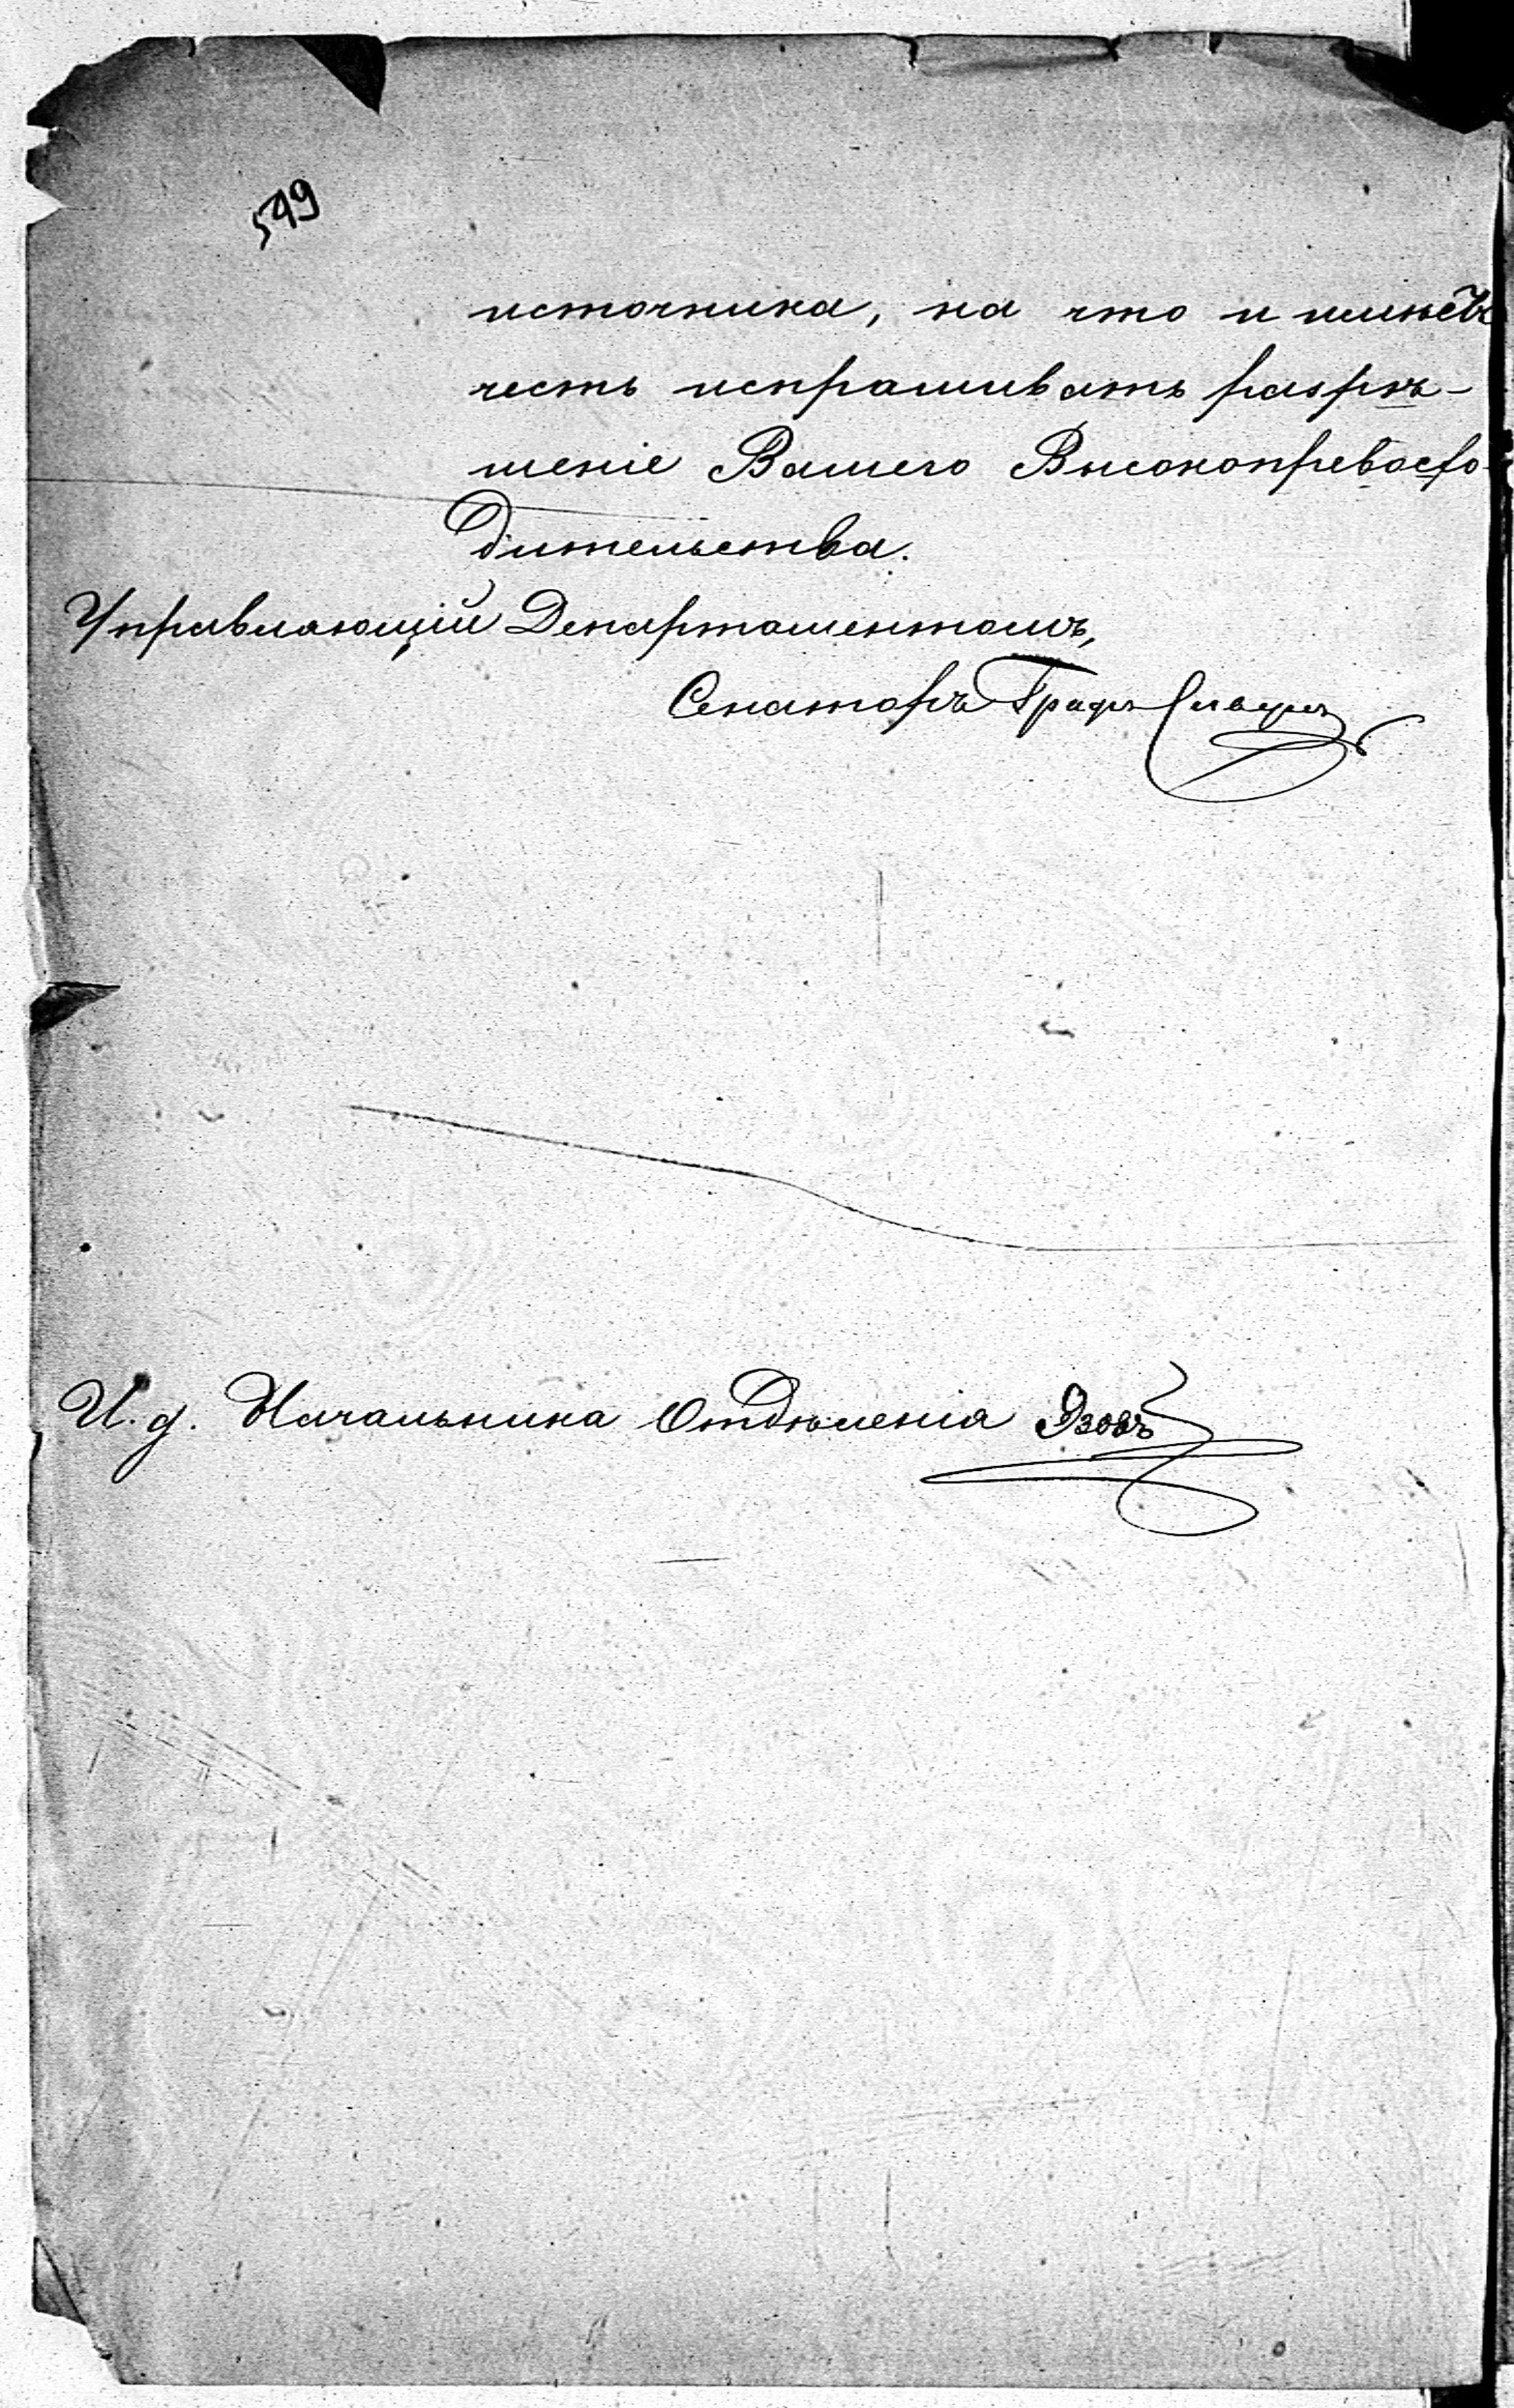 549
источника, на что и имѣетъ
честь испрашивать разрѣ-
шеніе Вашего Высокопревосхо-
дительства.
Управляющій Департаментомъ,
Сенаторъ Графъ Сиверсъ
И. д. Начальника Отдѣленія Язовъ